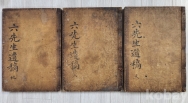 六先生遺稿
六先生遺稿
六先生遺稿